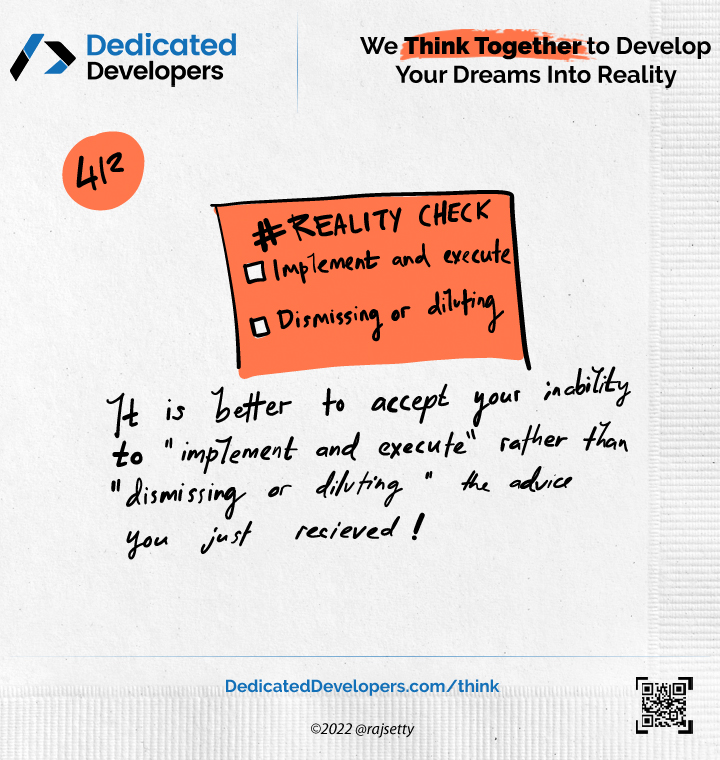 Dedicated
Developers
We Think Together to Develop
Your Dreams Into Reality
412
#REALITY CHECK
Implement and execute
Dismissing or diluting
It is better to accept your inability
to "implement and execute" rather than
"dismissing or diluting" the advice
you just recieved!
DedicatedDevelopers.com/think
©2022 @rajsetty